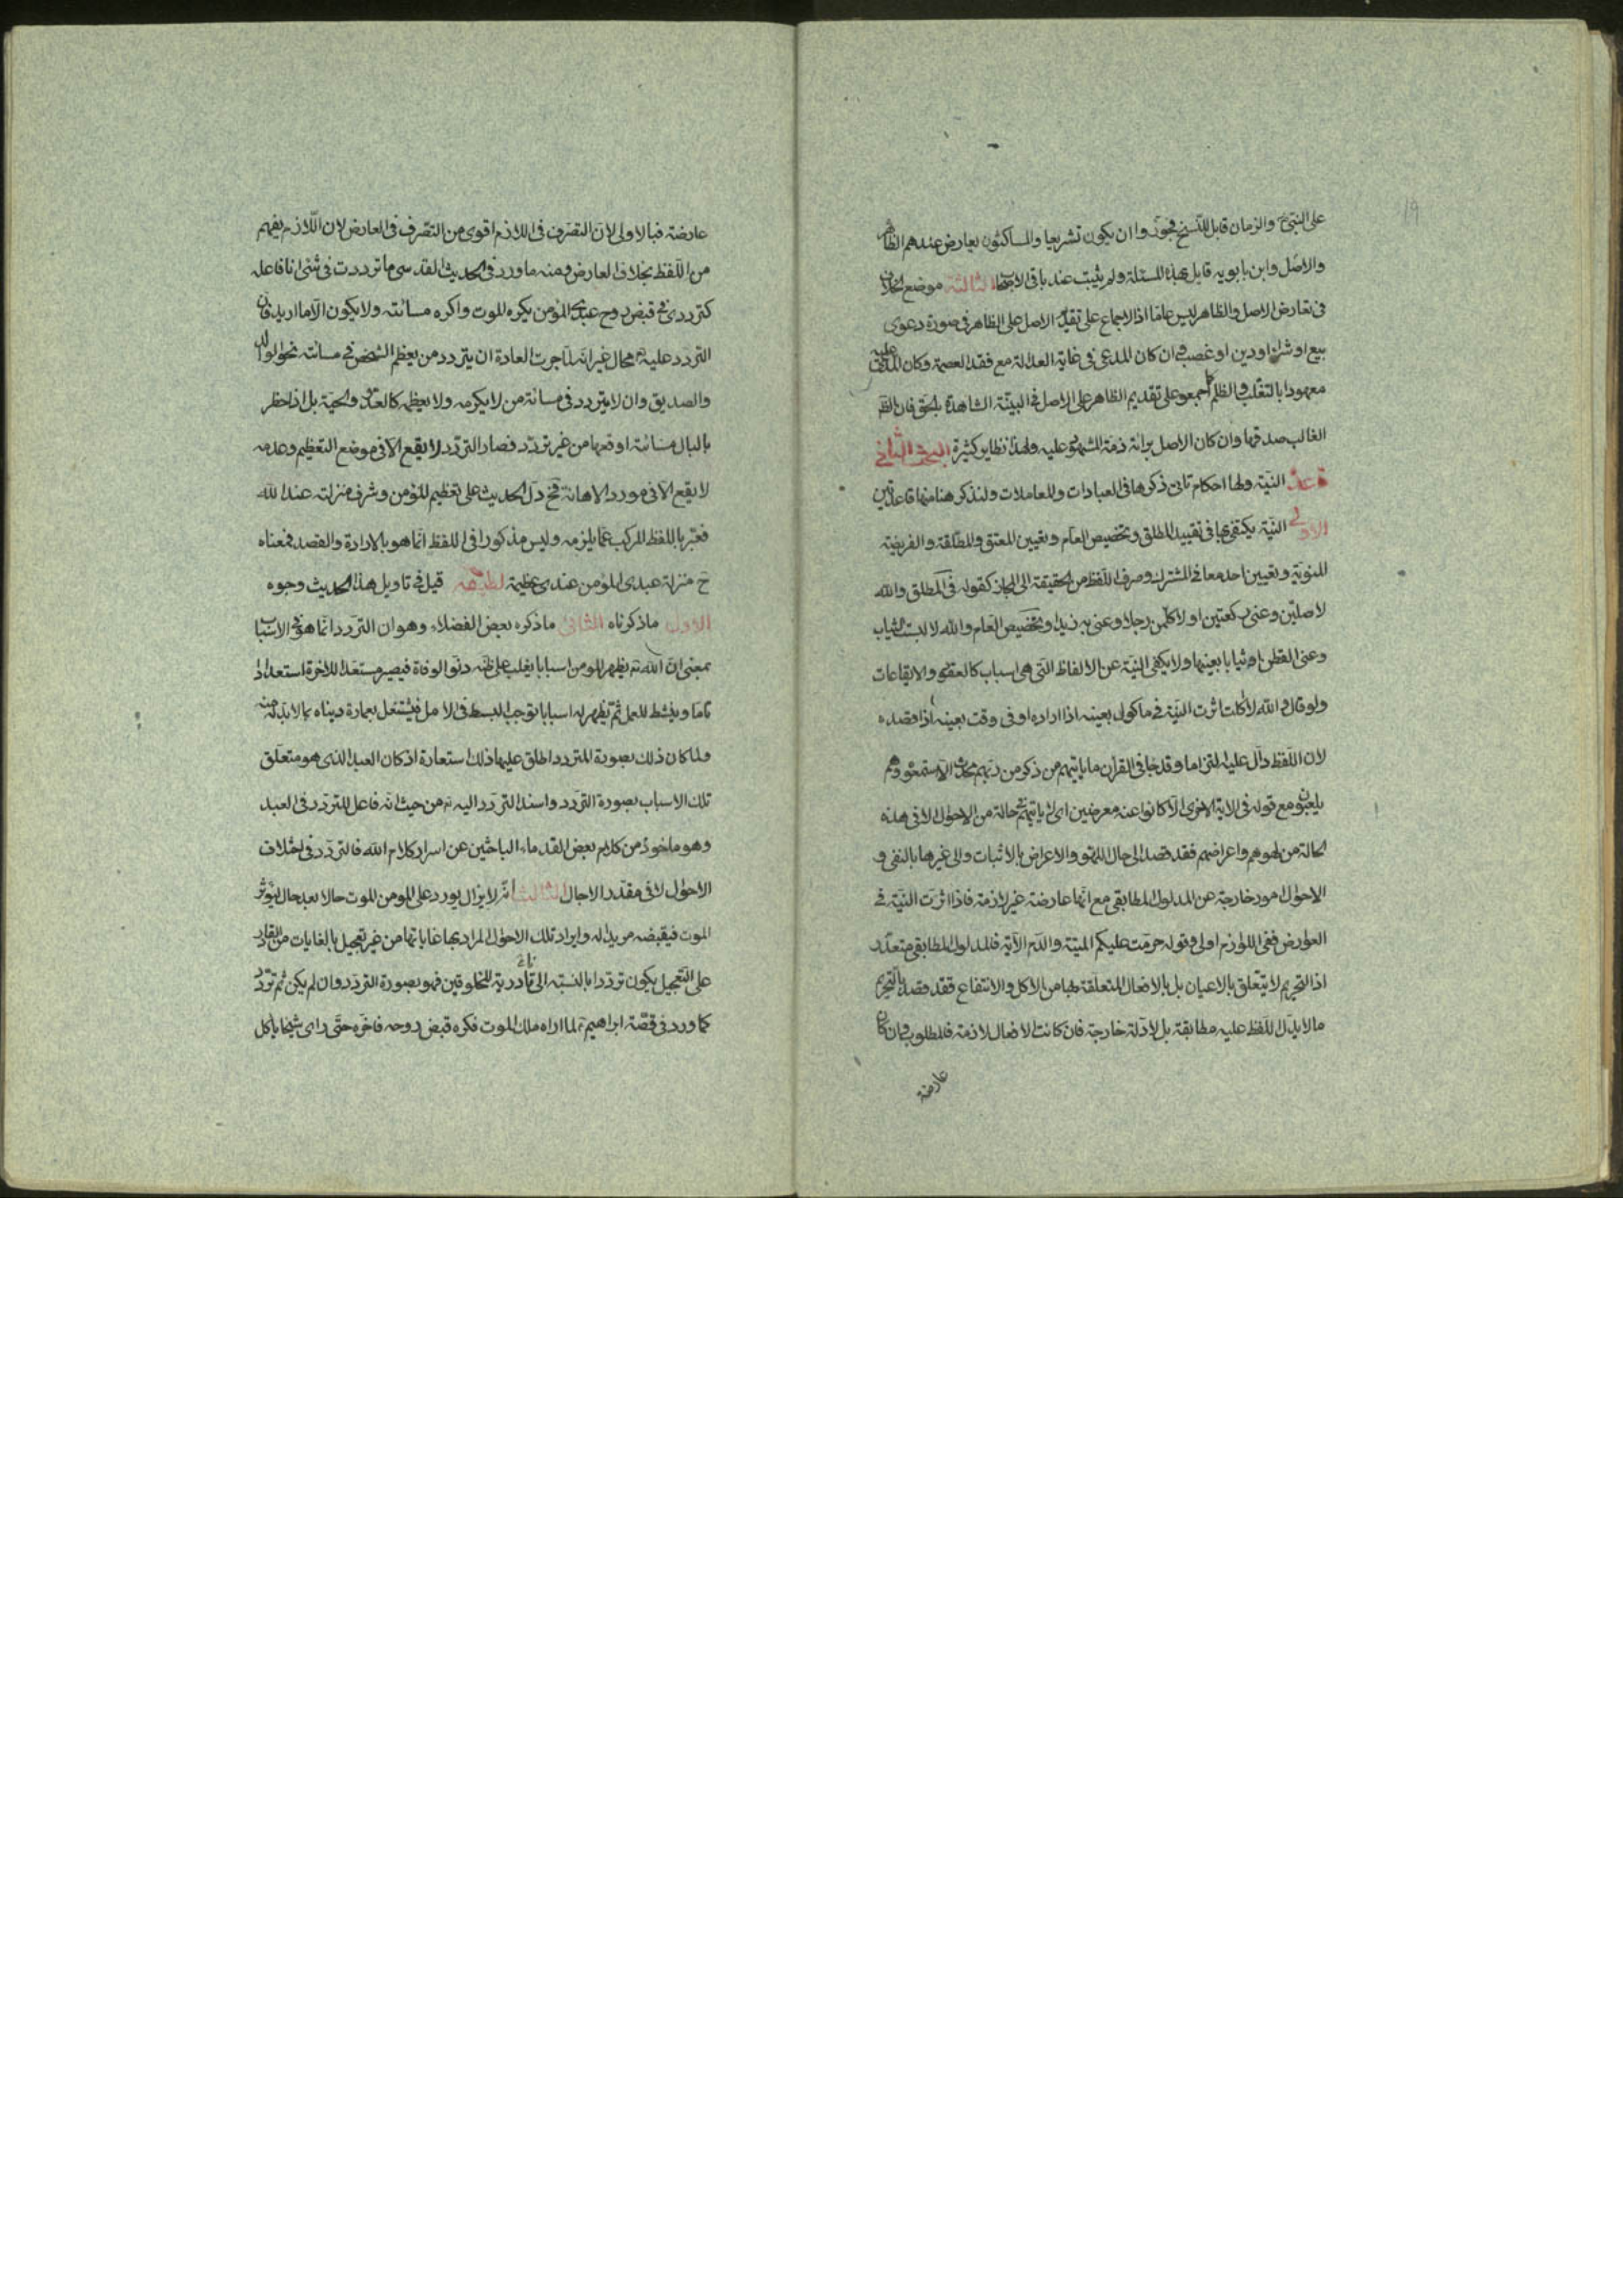 19
على النبى ص والزمان قابل للنسخ فجوزوا ان يكون تشريعا والساكتون يعارض عندهم الظاهر
والاصل وابن بابويه قايل بهذه المسئلة ولم يثبت عند باقى الاصحاب الثالثة موضع الخلاف
فى تعارض الاصل والظاهر ليس عاما اذ الاجماع على تقديم الاصل على الظاهر فى صورة دعوى
بيع او شراء او دين او غصب وان كان المدعى فى غاية العدالة مع فقد العصمة وكان المدعى عليه
معهودا بالتغلب والظلم كما اجمعوا على تقديم الظاهر على الاصل فى البينة الشاهدة بالحق فان الظ
الغالب صدقها وان كان الاصل برائة ذمة المشهود عليه ولهذا نظاير كثيرة البحث الثانى
قاعدة النية ولها احكام تاتى ذكرها فى العبادات والمعاملات ولنذكر هنا منها قاعدتين
الاولى النية يكتفى بها فى تقييد المطلق وتخصيص العام وتعيين المعتق والمطلقة والفريضة
المنوية وتعيين احد معانى المشترك وصرف اللفظ من الحقيقة الى المجاز كقوله فى المطلق والله
لاصلين وعنى ركعتين او لاكلمن رجلا وعنى به زيدا وتخصيص العام والله لا لبست الثياب
وعنى القطن او ثيابا بعينها ولا يكفى النية عن الالفاظ التى هى اسباب كالعقود والايقاعات
ولو قال والله لا اكلت اثرت النية فى ماكول بعينه اذا اراده او فى وقت بعينه اذا قصده
لان اللفظ دال عليه التزاما وقد جاء فى القرآن ما ياتيهم من ذكر من ربهم محدث الا استمعوه وهم
يلعبون مع قوله فى الاية الاخرى الا كانوا عنه معرضين اى لا ياتيهم فى حالة من الاحوال الا فى هذه
الحالة من لهوهم واعراضهم فقد قصد الى حال اللهو والاعراض بالاثبات والى غيرها بالنفى و
الاحوال امور خارجة عن المدلول المطابقى مع انها عارضة غير لازمة فاذا اثرت النية فى
العوارض ففى اللوازم اولى وقوله حرمت عليكم الميتة والدم الآية فالمدلول المطابقى متعذر
اذ التحريم لا يتعلق بالاعيان بل بالافعال المتعلقة بها من الاكل والانتفاع فقد قصد بالتحريم
ما لا يدل اللفظ عليه مطابقة بل لادلة خارجة فان كانت الافعال لازمة فالمطلوب وان كان
عارضة
عارضة فبالاولى لان التصرف فى اللازم اقوى من التصرف فى العارض لان اللازم يفهم
من اللفظ بخلاف العارض ومنه ما ورد فى الحديث القدسى ما ترددت فى شئ انا فاعله
كترددى فى قبض روح عبدى المؤمن يكره الموت واكره مسائته ولا يكون الا ما اريد فان
التردد عليه تع محال غير انه لما جرت العادة ان يتردد من يعظم الشخص فى مسائته نحو الوالد
والصديق وان لا يتردد فى مسائة من لا يكرمه ولا يعظمه كالعدو والحية بل اذا خطر
بالبال مسائته اوقعها من غير تردد فصار التردد لا يقع الا فى موضع التعظيم وعدمه
لا يقع الا فى مورد الاهانة فح دل الحديث على تعظيم المؤمن وشرف منزلته عند الله
فعبر باللفظ المركب عما يلزمه وليس مذكورا فى اللفظ انما هو بالارادة والقصد فمعناه
ح منزلة عبدى المؤمن عندى عظيمة لطيفه قيل فى تاويل هذا الحديث وجوه
الاول ما ذكرناه الثانى ما ذكره بعض الفضلاء وهو ان التردد انما هو فى الاسباب
بمعنى ان الله تع يظهر للمومن اسبابا يغلب على ظنه دنو الوفاة فيصير مستعدا للاخرة استعدادا
تاما وينشط للعمل ثم يظهر له اسبابا توجب البسط فى الامل فيشتغل بعمارة دنياه بما لا بد له منه
ولما كان ذلك بصورة المتردد اطلق عليها ذلك استعارة اذ كان العبد الذى هو متعلق
تلك الاسباب بصورة التردد واسند التردد اليه تع من حيث انه فاعل للتردد فى العبد
وهو ماخوذ من كلام بعض القدماء الباحثين عن اسرار كلام الله فالتردد فى اختلاف
الاحوال لا فى مقدر الاجال الثالث انه لا يزال يورد على المومن الموت حالا بعد حال ليؤثر
الموت فيقبضه مريدا له وايراد تلك الاحوال المراد بها غاياتها من غير تعجيل بالغايات من القادر
على التعجيل يكون ترددا بالنسبته الى قادرية المخلوقين فهو بصورة التردد وان لم يكن ثم تردد
كما ورد فى قصة ابراهيم ع لما اراه ملك الموت فكره قبض روحه فاخره حتى راى شيخا ياكل